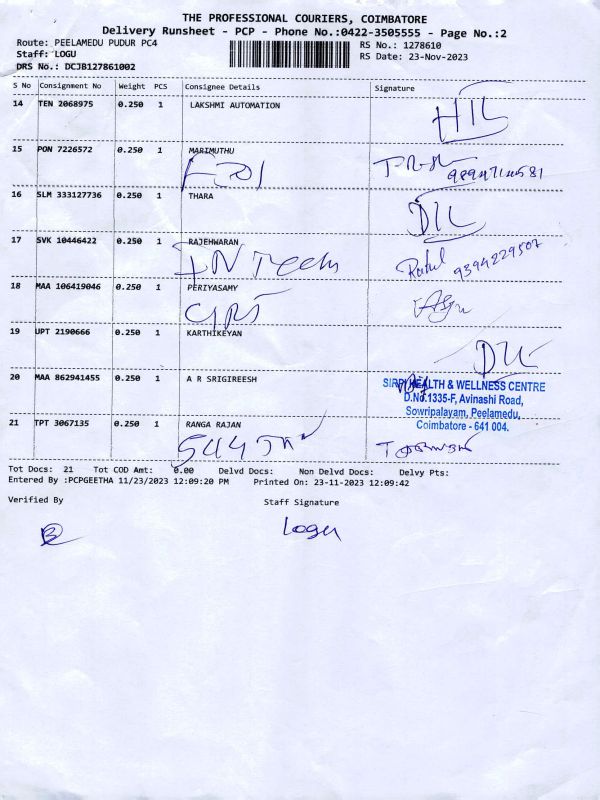 THE PROFESSIONAL COURIERS, COIMBATORE
Delivery Runsheet - PCP - Phone No.:0422-3505555 - Page No.:2
Route: PEELAMEDU PUDUR PC4
RS No.: 1278610
Staff: LOGU
RS Date: 23-Nov-2023
DRS No.: DCJB127861002
S No Consignment No Weight PCS Consignee Details Signature
14 TEN 2068975 0.250 1 LAKSHMI AUTOMATION
HIL
15 PON 7226572 0.250 1 MARIMUTHU
16 SLM 333127736 0.250 1 THARA
DIL
17 SVK 10446422 0.250 1 RAJEHWARAN
Rahul 9394229507
18 MAA 106419046 0.250 1 PERIYASAMY
19 UPT 2190666 0.250 1 KARTHIKEYAN
20 MAA 862941455 0.250 1 A R SRIGIREESH
SIRPI HEALTH & WELLNESS CENTRE
D.No.1335-F, Avinashi Road,
Sowripalayam, Peelamedu,
Coimbatore - 641 004.
21 TPT 3067135 0.250 1 RANGA RAJAN
Tot Docs: 21 Tot COD Amt: 0.00 Delvd Docs: Non Delvd Docs: Delvy Pts:
Entered By :PCPGEETHA 11/23/2023 12:09:20 PM Printed On: 23-11-2023 12:09:42
Verified By Staff Signature
Logu